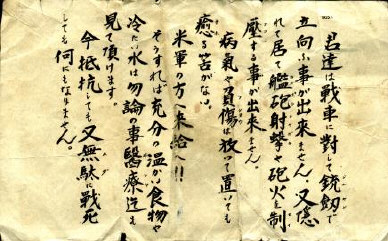 君達は戦車に對して銃劔で
立向ふ事が出来ません、又隠
れて居て艦砲射撃や砲火を制
壓する事が出来ません。
病気や負傷は放って置いても
癒る筈がない。
米軍の方へ来給へ!!
そうすれば充分の温かい食物や
冷たい水は勿論の事醫療迄も
見て頂けます。
今抵抗しても又無駄に戦死
しても何にもなりません。